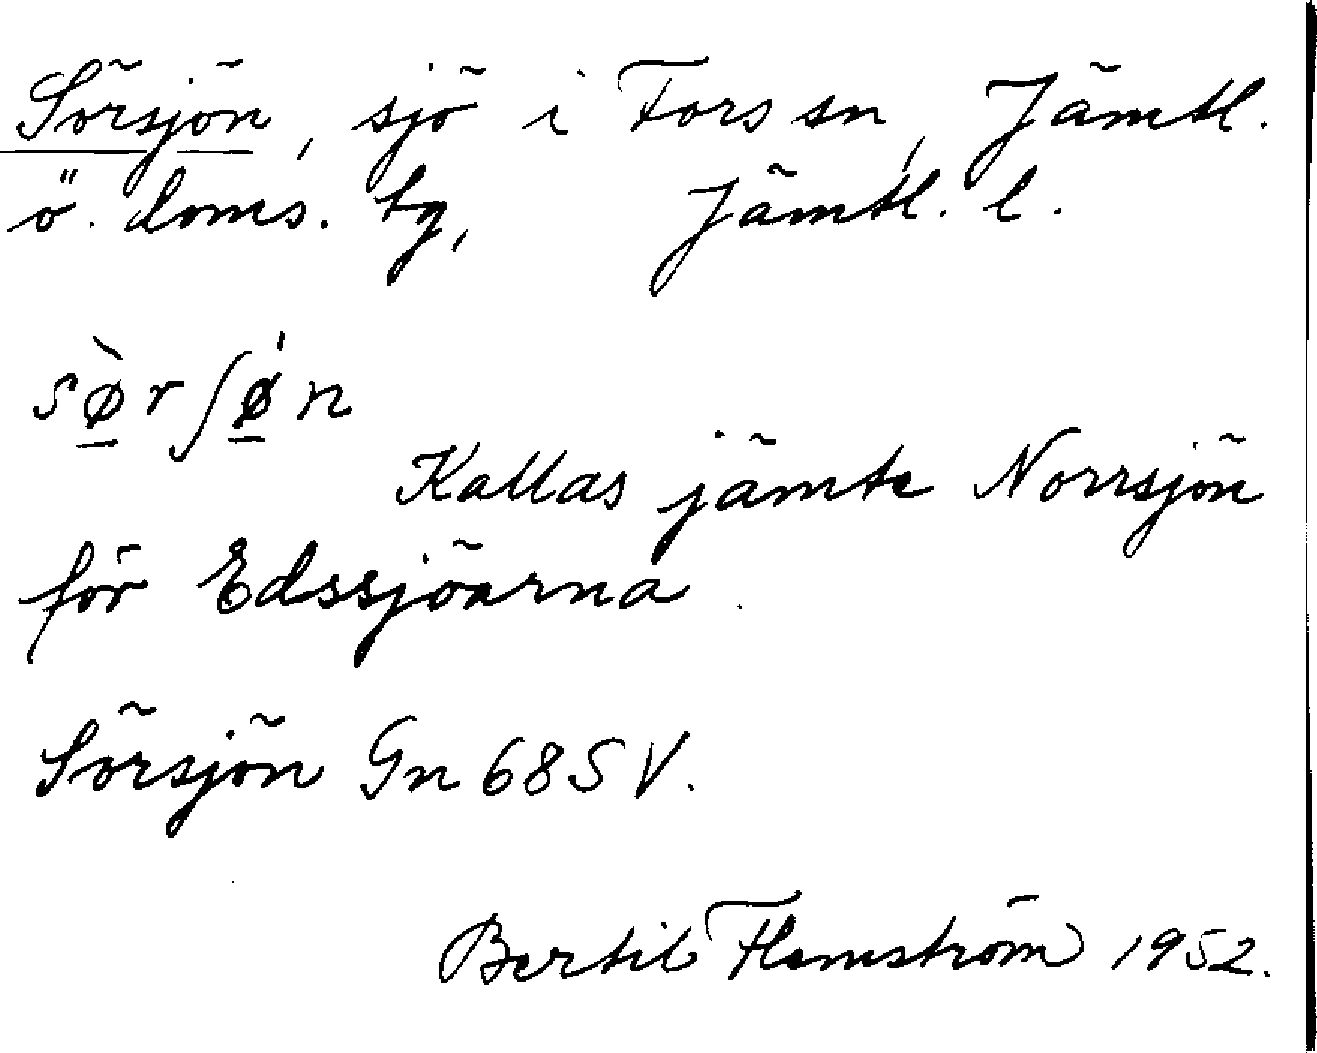 Sörsjön, sjö i Fors sn, Jämtl.
ö. doms. tg, Jämtl. l.
sø̀rʃǿn
Kallas jämte Norrsjön
för Edssjöarna.
Sörsjön Gn 68 SV.
Bertil Flemström 1952.